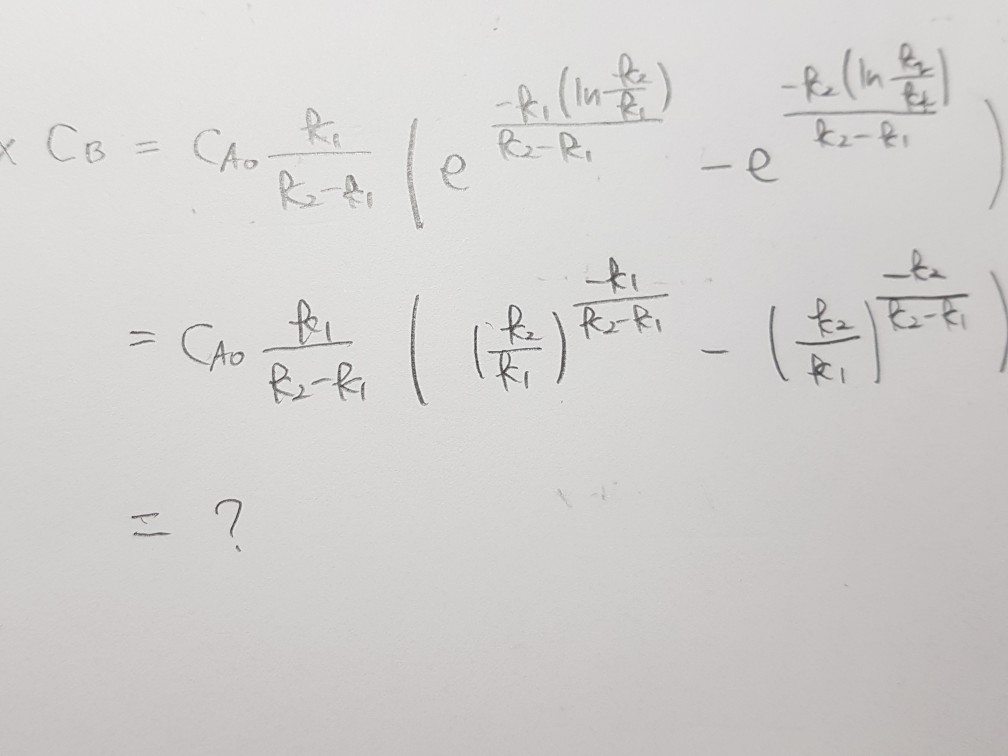 x C_B = C_{A0} \frac{k_1}{k_2-k_1} \left( e^{\frac{-k_1 (\ln \frac{k_2}{k_1})}{k_2-k_1}} - e^{\frac{-k_2 (\ln \frac{k_2}{k_1})}{k_2-k_1}} \right)
= C_{A0} \frac{k_1}{k_2-k_1} \left( \left(\frac{k_2}{k_1}\right)^{\frac{-k_1}{k_2-k_1}} - \left(\frac{k_2}{k_1}\right)^{\frac{-k_2}{k_2-k_1}} \right)
= ?